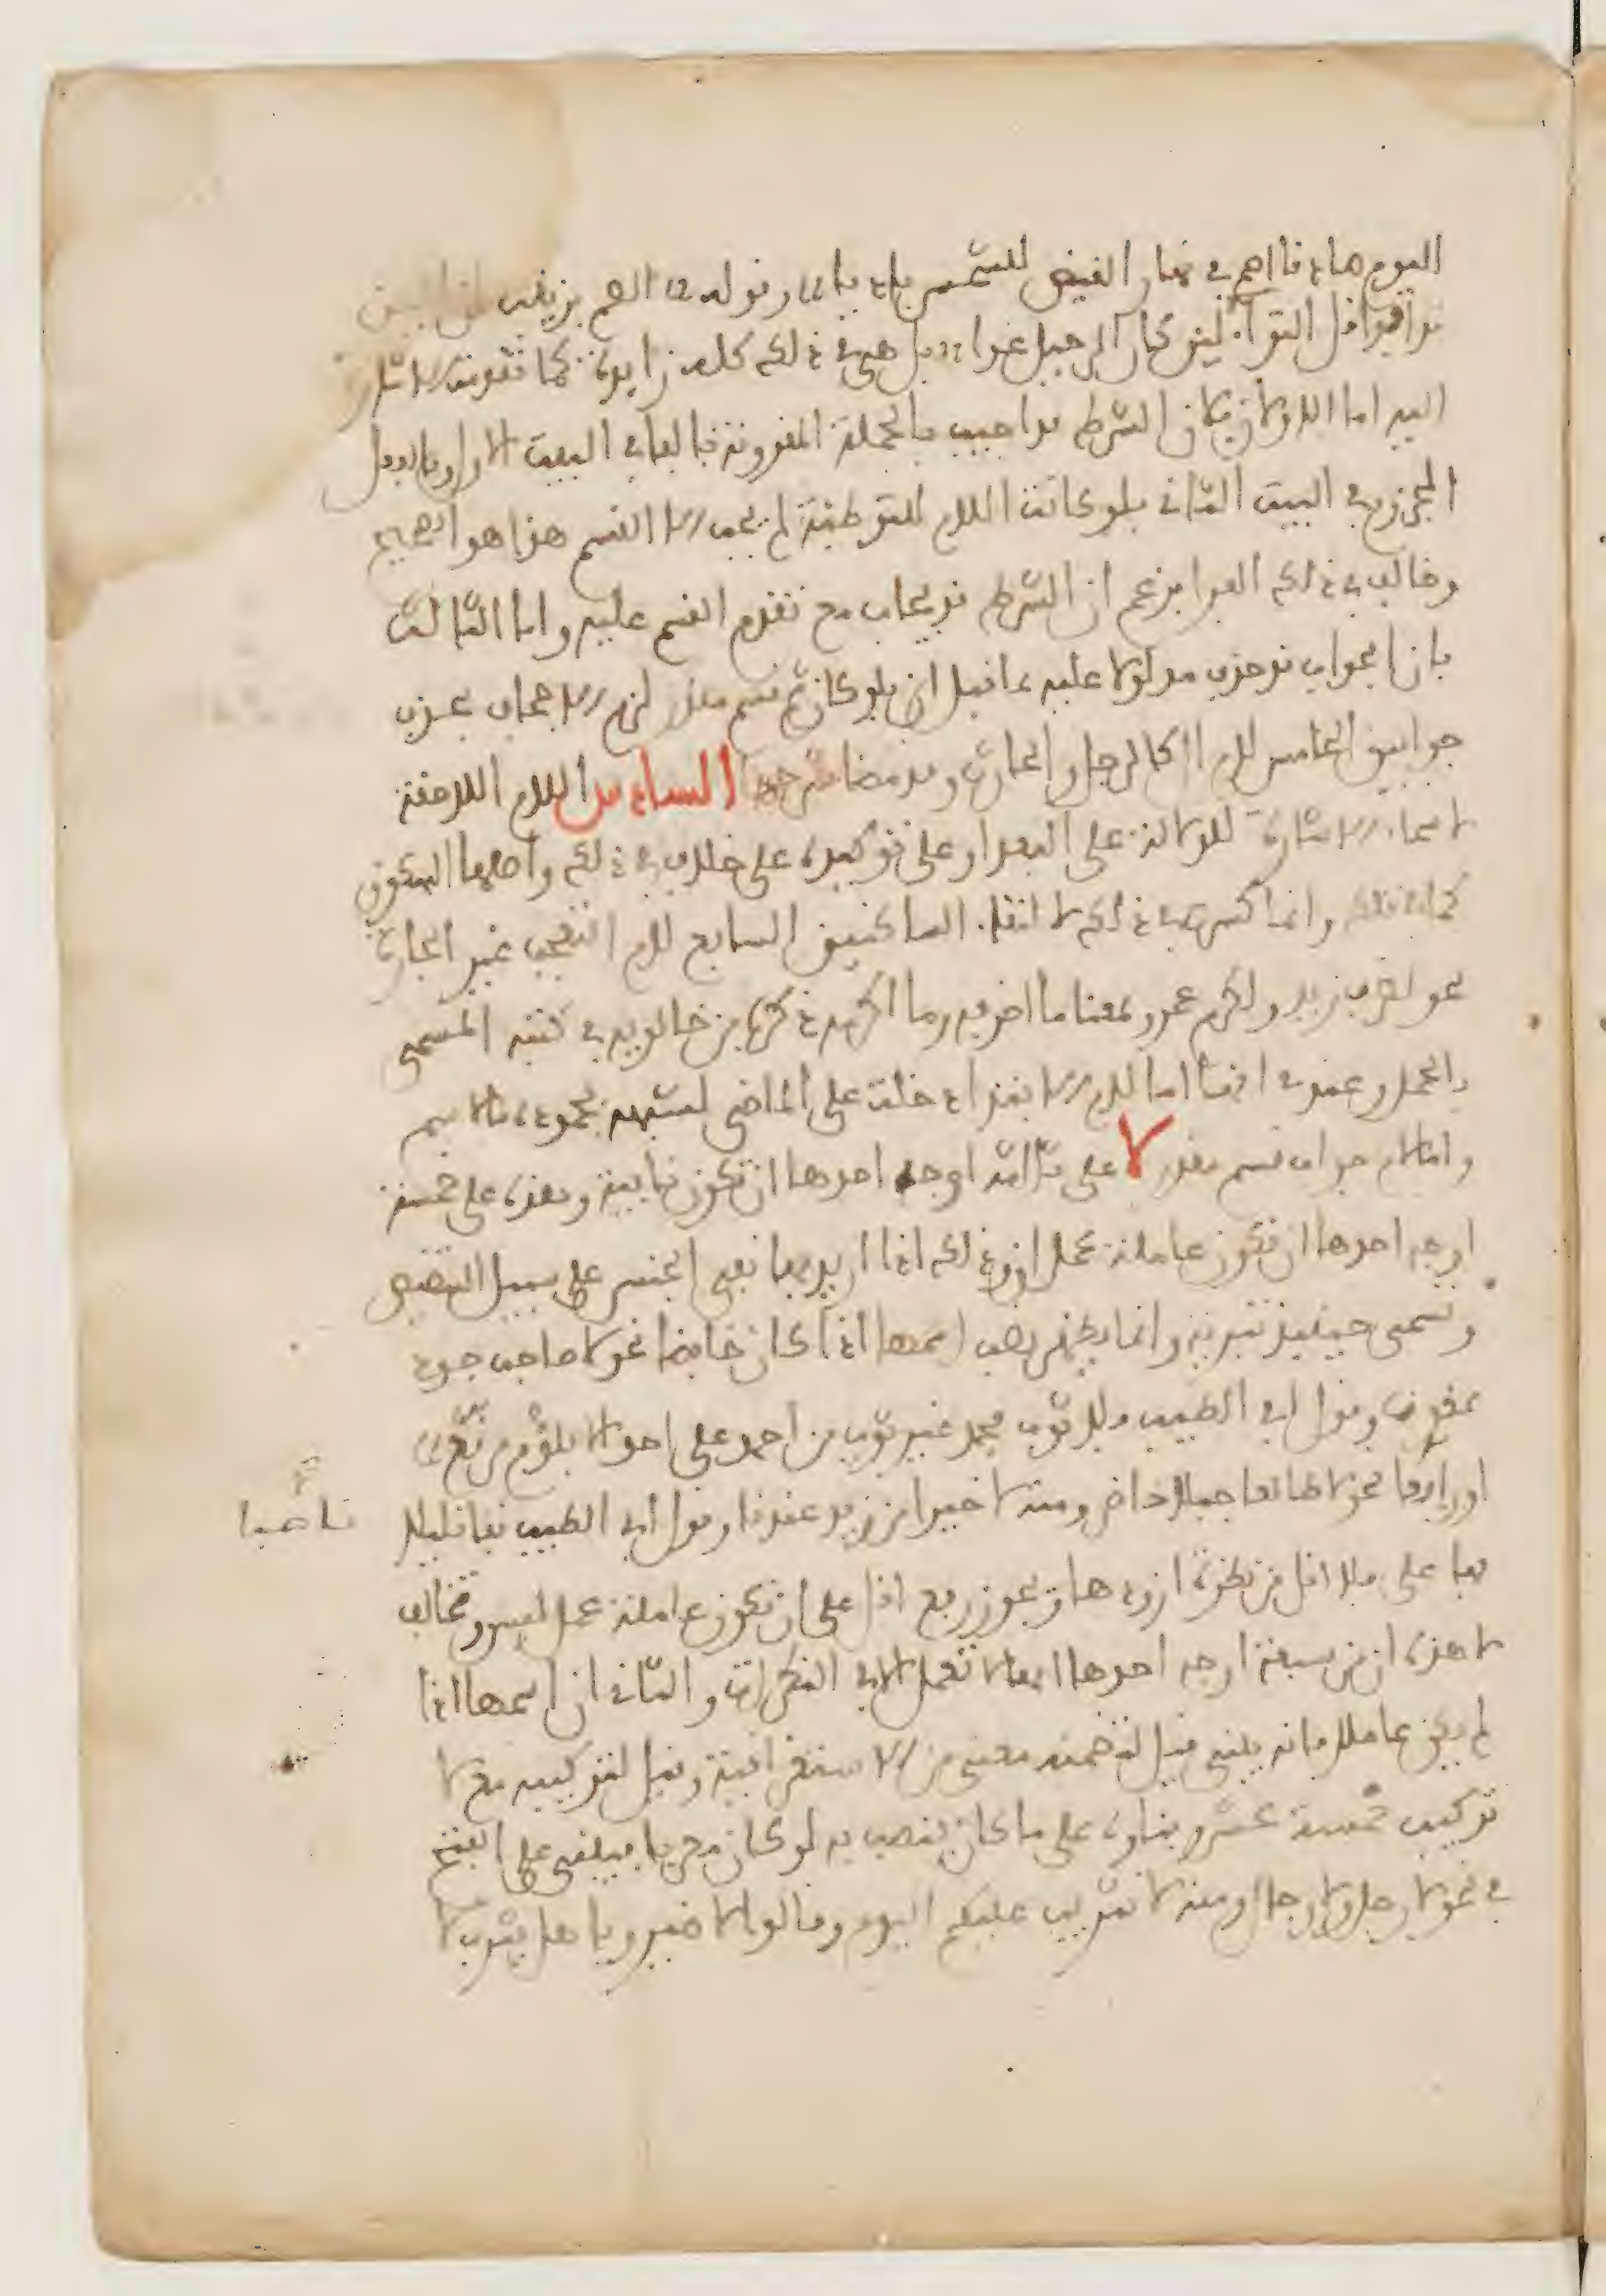 اليوم صادقا اصم في نهار القيض للشمس باديا وقوله المم بزينب ان البين
قد افدا قل الثواء لين كان الرحيل غدا بل هي في ذلك كله زايدة كما تقدمت الاشارة
اليه اما الاولان فلان الشرط قد اجيب بالجملة المقرونة بالفاء في البيت الاول وبالفعل
المجزوم في البيت الثاني فلو كانت اللام للتوطئة لم يجب الا القسم هذا هو الصحيح
وخالف في ذلك الفرا فزعم ان الشرط قد يجاب مع تقدم القسم عليه واما الثالث
فان الجواب قد حذف مدلولا عليه بما قبل ان فلو كان ثم قسم مقدر لزم الاجحاف بحذف
جوابين الخامس لام ال كالرجل والحارث وقد مضا شرحها السادس اللام اللاحقة
لاسماء الاشارة للدلالة على البعد او على توكيده على خلاف في ذلك واصلها السكون
كما في تلك وانما كسرت في ذلك لالتقاء الساكنين السابع لام التعجب غير الجارة
نحو لظرف زيد ولكرم عمرو بمعنا ما اظرفه وما اكرمه ذكره ابن خالويه في كتبه المسمى
بالجمل وعندي انها اما لام الابتداء دخلت على الماضي لشبهه بجموده بالاسم
واما لام جواب قسم مقدر لا على ثلاثة اوجه احدها ان تكون نافية وهذه على خمسة
اوجه احدها ان تكون عاملة عمل ان وذلك اذا اريد بها نفي الجنس على سبيل التنصيص
وتسمى حينيذ تبرية وانما يظهر نصب اسمها اذا كان خافضا نحو لا صاحب جود
ممقوت وقول ابي الطيب فلا ثوب مجد غير ثوب بن احمد على احد الا بلؤم مرقع
او رافعا نحو لا طالعا جبلا حاضر ومنه لا خيرا من زيد عندنا وقول ابي الطيب قفا قليلا
ناصبا
بها على فلا اقل من نظرة ازودها ويجوز رفع اقل على ان تكون عاملة عمل ليس وتخالف
لا هذه ان من سبعة اوجه احدها انها لا تعمل الا في النكرات والثاني ان اسمها اذا
لم يكن عاملا فانه يبنى قيل لتضمنه معنى من الاستغراقية وقيل لتركيبه مع لا
تركيب خمسة عشر وبناوه على ما كان ينصب به لو كان معربا فيبنى على الفتح
في نحو لا رجل ولا رجال ومنه لا تثريب عليكم اليوم وقالوا لا ضير ويا اهل يثرب لا